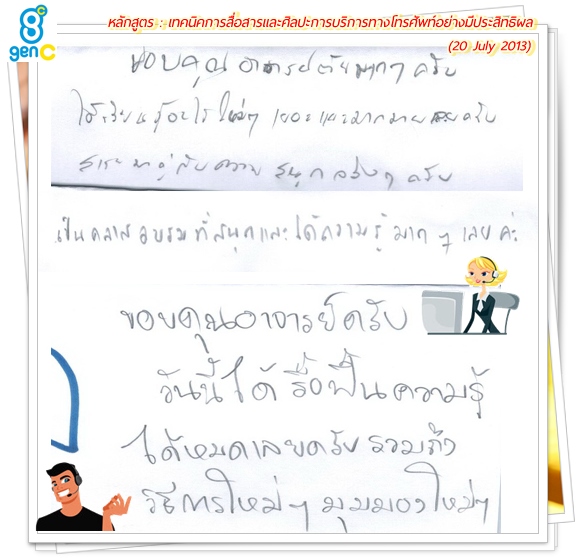 gen C
หลักสูตร : เทคนิคการสื่อสารและศิลปะการบริการทางโทรศัพท์อย่างมีประสิทธิผล
(20 July 2013)
ขอบคุณ อาจารย์ มากๆ ครับ
ได้เรียนรู้อะไรใหม่ๆ เยอะแยะมากมายเลยครับ
สาระมาคู่กับความ สนุกจริงๆ ครับ
เป็นคลาสอบรมที่สนุกและได้ความรู้มาก ๆ เลย ค่ะ
ขอบคุณอาจารย์ครับ
วันนี้ได้ รื้อฟื้นความรู้
ได้หมดเลยครับ รวมถึง
วิธีการใหม่ ๆ มุมมองใหม่ๆ